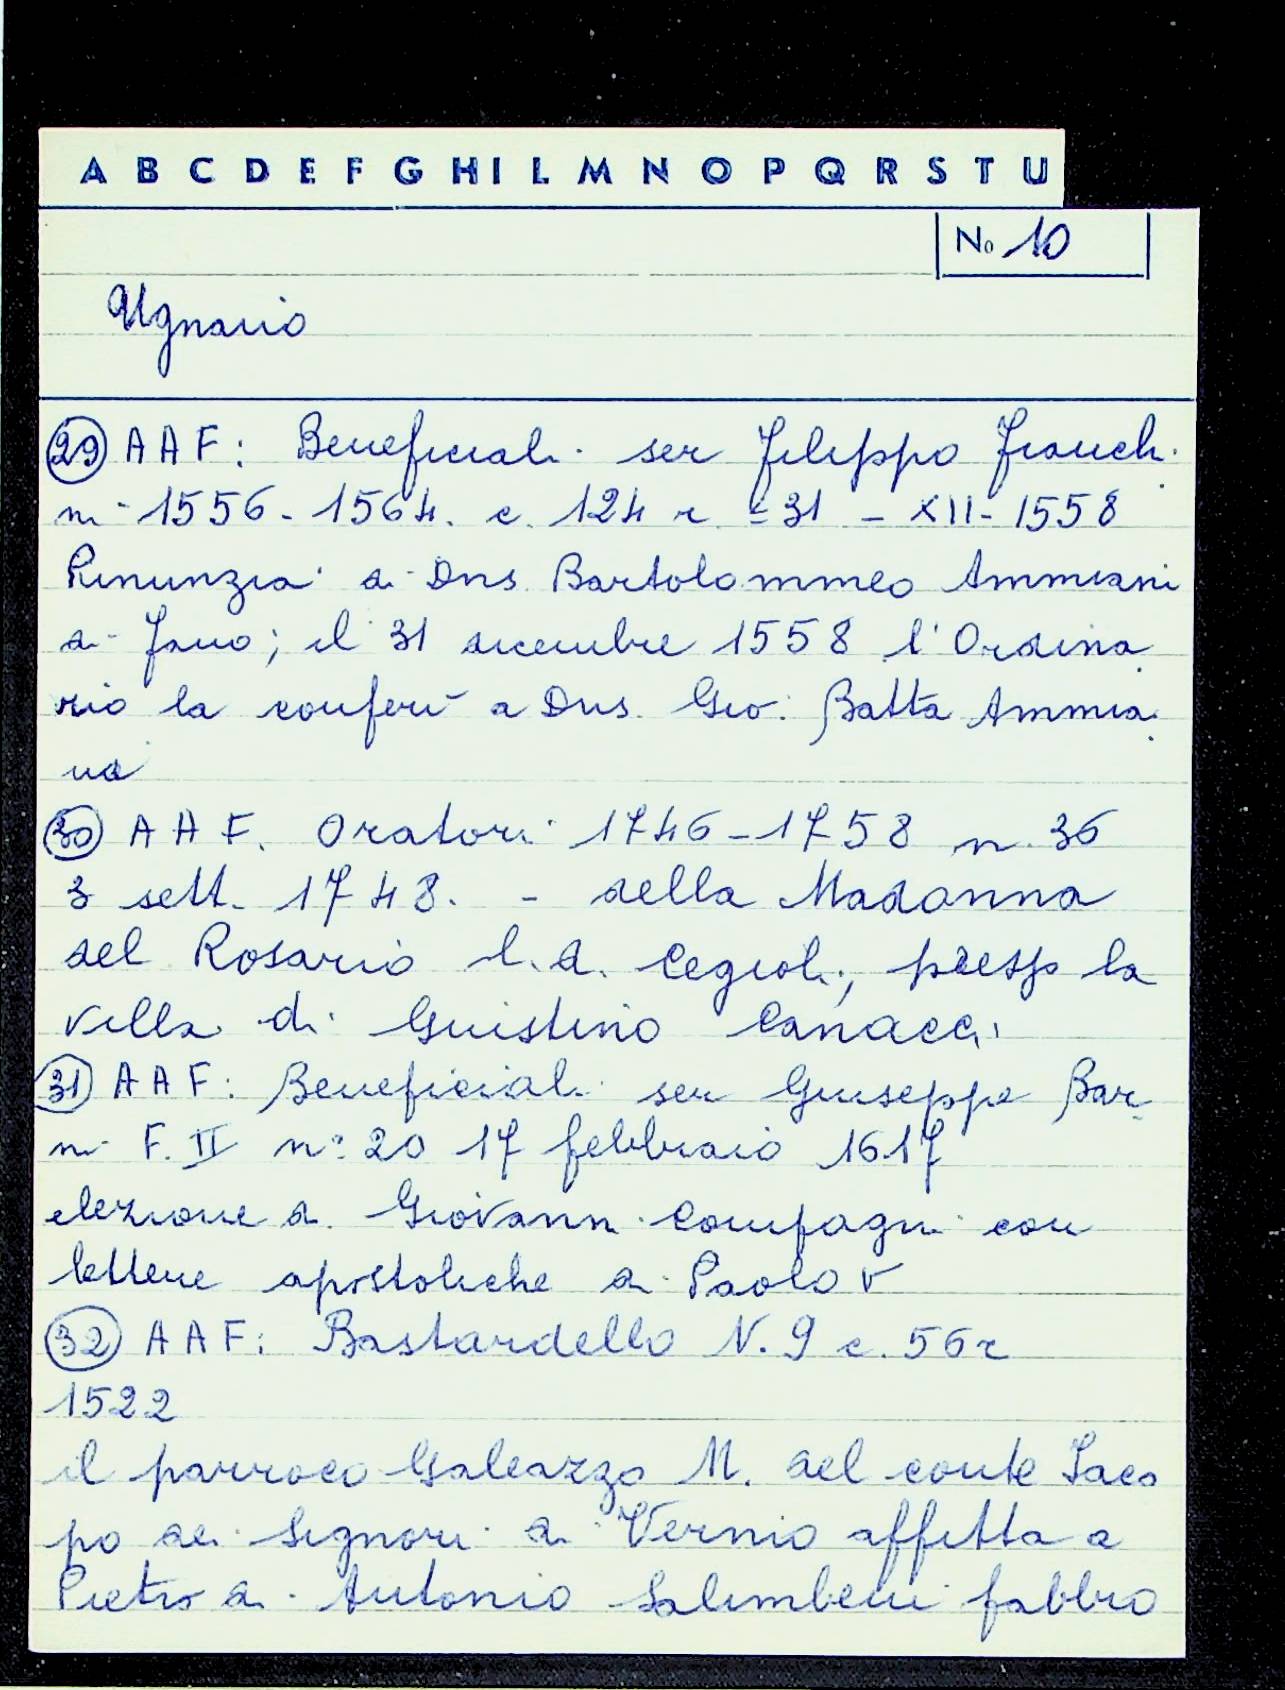 A B C D E F G H I L M N O P Q R S T U
No 10
Ugnano
29 AAF: Beneficiali ser Filippo Franchi
ni 1556-1564. c. 124 r = 31 - XII - 1558
Rinunzia di Dns Bartolommeo Ammiani
di Fano; il 31 dicembre 1558 l'Ordina
rio la conferì a Dns. Gio: Batta Ammia
ni
30 AAF. Oratori 1746-1758 n. 36
3 sett. 1748. - della Madonna
del Rosario l.d. Cegioli, presso la
villa di Guistino Canacci
31 AAF: Beneficiali ser Giuseppe Bar
ni F. II nº 20 17 febbraio 1617
elezione di Giovanni Compagni con
lettere apostoliche di Paolo V
32 AAF: Bastardello N. 9 c. 56r
1522
il parroco Galeazzo M. del conte Iaco
po dei Signori di Vernio affitta a
Pietro di Antonio Salimbeni fabbro